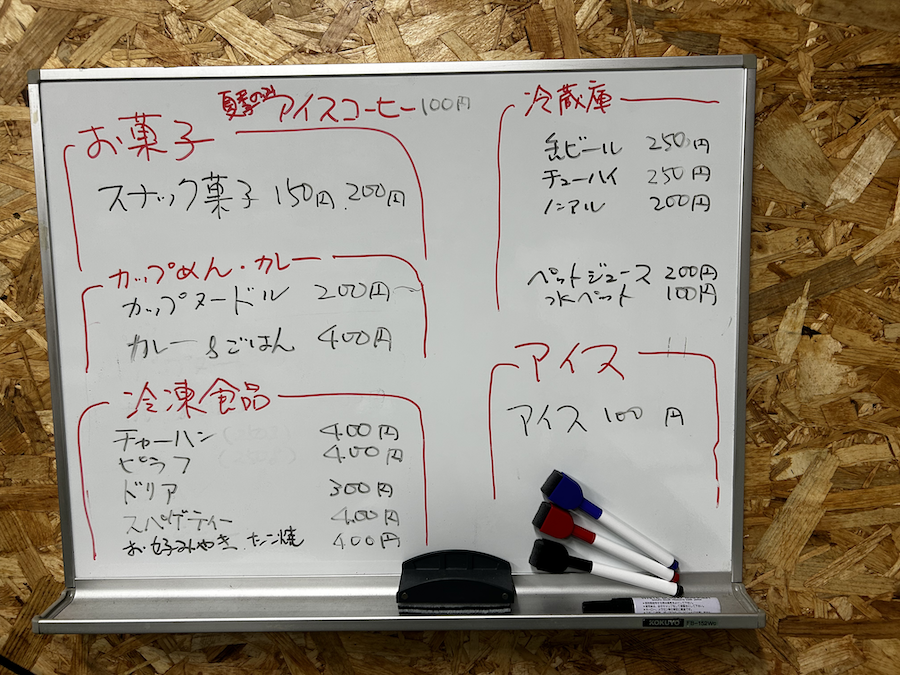 夏季のみ アイスコーヒー 100円
お菓子
スナック菓子 150円、200円
カップめん・カレー
カップヌードル 200円
カレー&ごはん 400円
冷凍食品
チャーハン 400円
ピラフ 400円
ドリア 300円
スパゲティー 400円
お好みやき、たこ焼 400円
冷蔵庫
缶ビール 250円
チューハイ 250円
ノンアル 200円
ペットジュース 200円
水ペット 100円
アイス
アイス 100円
KOKUYO FB-152WC